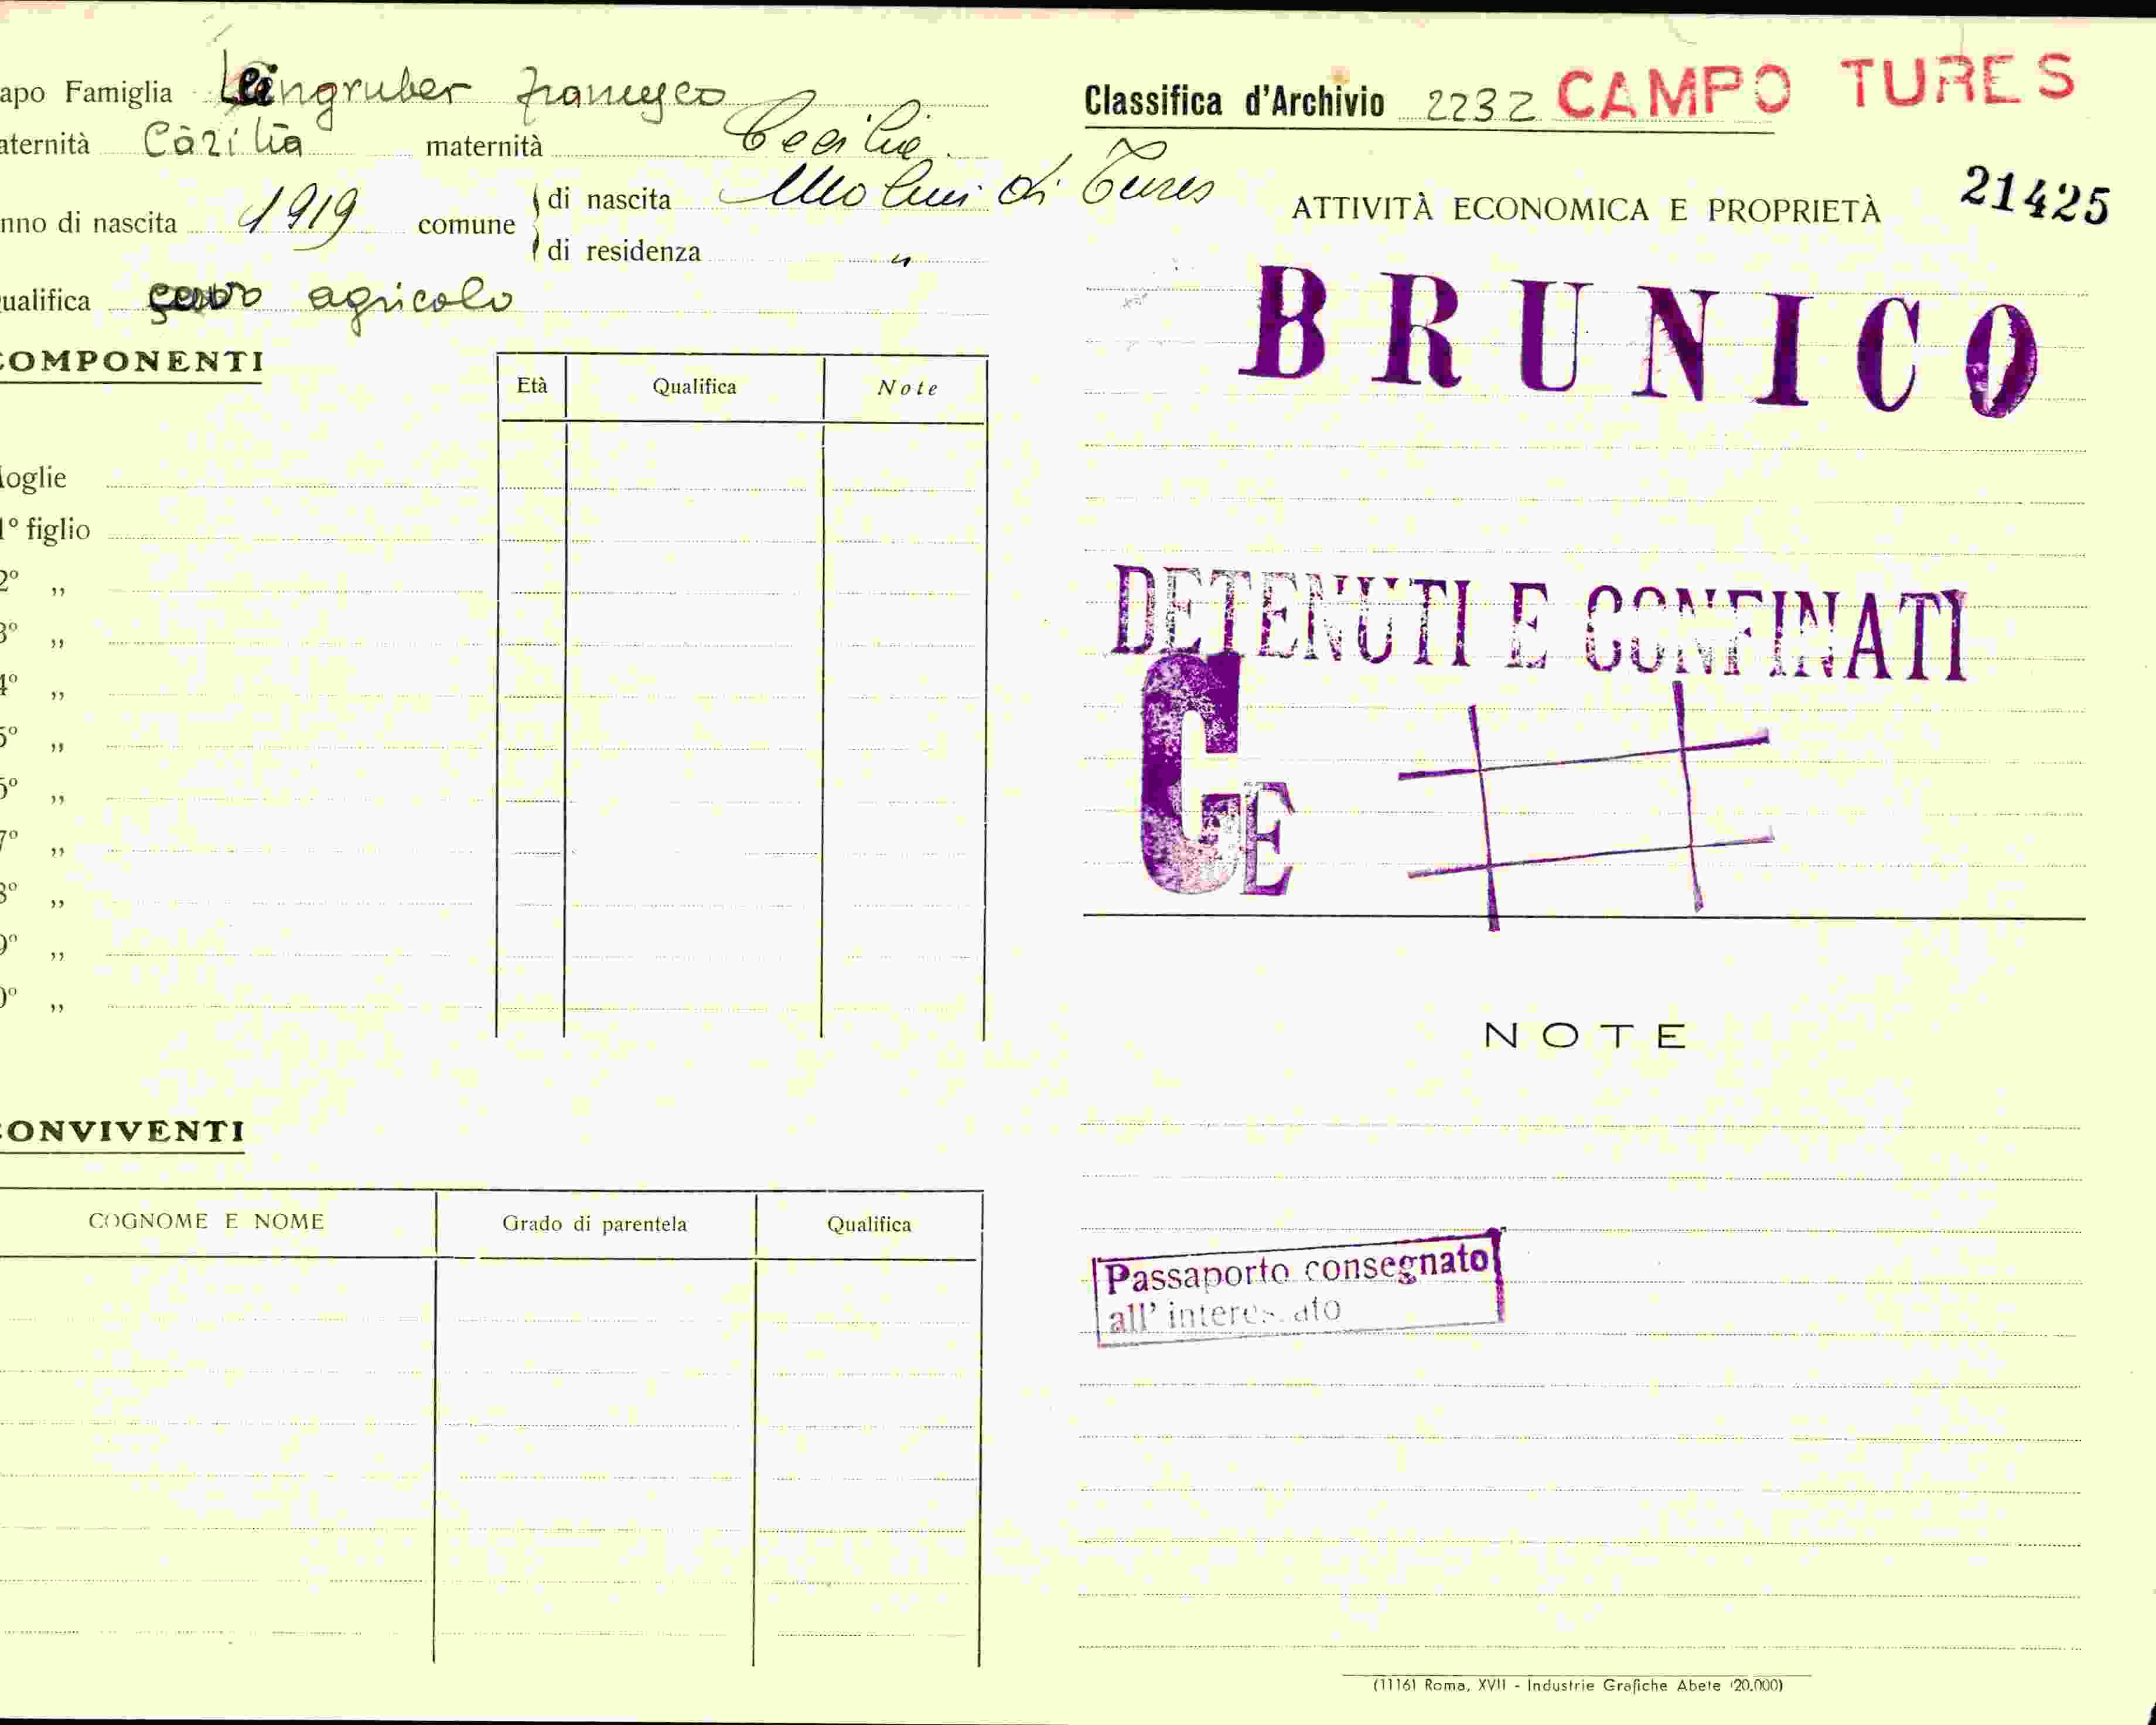 apo Famiglia Leingruber Francesco
aternità Cäzilia maternità Cecilia
nno di nascita 1919 comune di nascita Molini di Tures
di residenza "
ualifica servo agricolo
COMPONENTI
Età Qualifica Note
oglie
1° figlio
2° ,,
3° ,,
4° ,,
5° ,,
6° ,,
7° ,,
8° ,,
9° ,,
0° ,,
CONVIVENTI
COGNOME E NOME Grado di parentela Qualifica
Classifica d'Archivio 2232 CAMPO TURES
ATTIVITÀ ECONOMICA E PROPRIETÀ 21425
BRUNICO
DETENUTI E CONFINATI
GE
NOTE
Passaporto consegnato
all' interessato
(1116) Roma, XVII - Industrie Grafiche Abete (20.000)